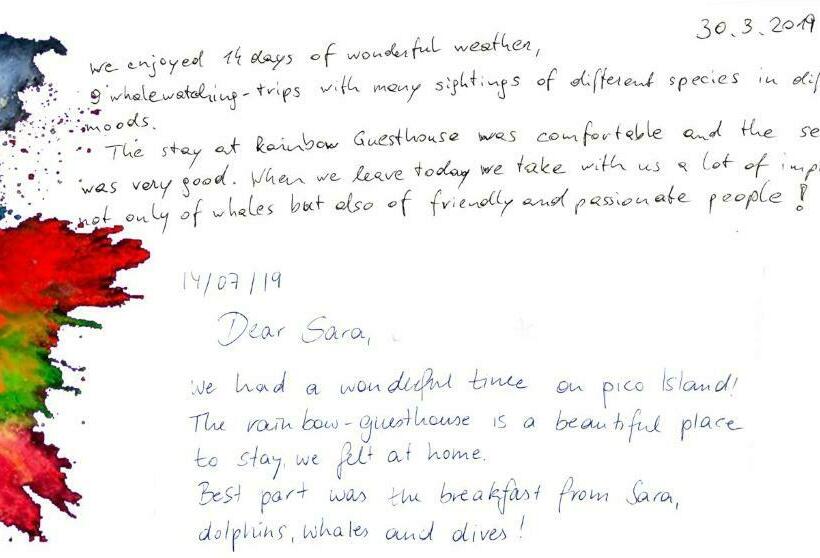 30.3.2019
We enjoyed 14 days of wonderful weather,
9 whalewatching-trips with many sightings of different species in dif
moods.
The stay at Rainbow Guesthouse was comfortable and the se
was very good. When we leave today we take with us a lot of imp
not only of whales but also of friendly and passionate people!
14/07/19
Dear Sara,
We had a wonderful time on pico Island!
The rainbow-guesthouse is a beautiful place
to stay, we felt at home.
Best part was the breakfast from Sara,
dolphins, whales and dives!